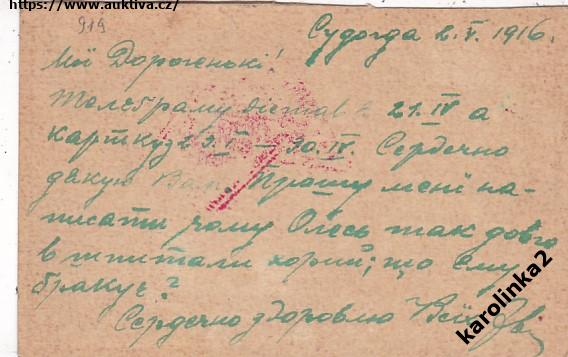 https://www.auktiva.cz/
919
Судогда 2.V.1916.
Мої Дорогенькі!
Телеграму дістав 21.IV а
картку з 30.IV. Сердечно
дякую Вам. Прошу мені на-
писати чому Олесь так довго
в шпитали хорий; що ему
бракує?
Сердечно здоровлю Всїх
karolinka2